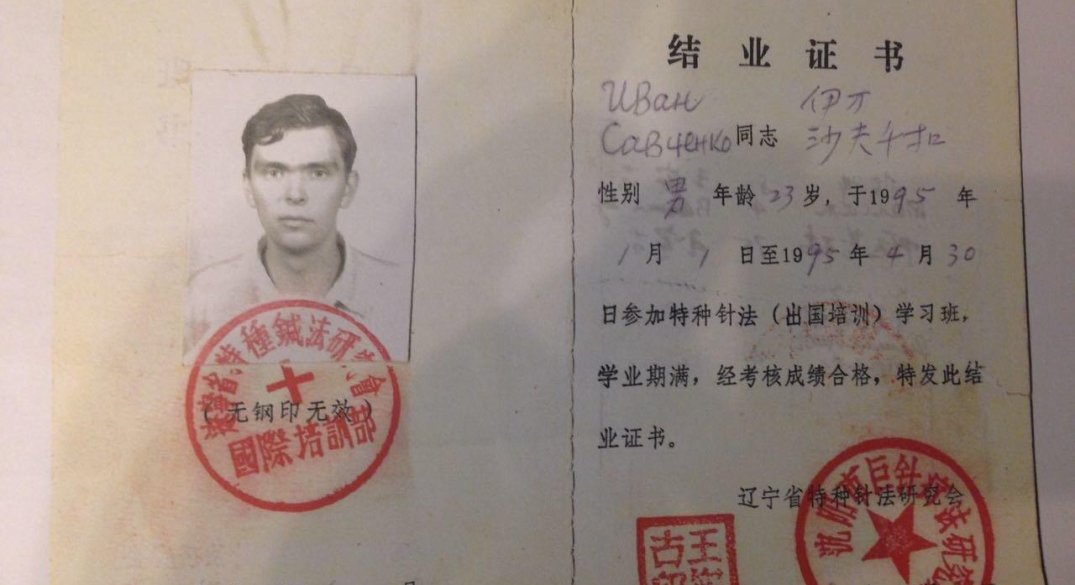 特種鍼法研究會
(无钢印无效)
國際培訓部
结业证书
Иван 伊万
Савченко 同志 沙夫千扣
性别 男 年龄 23 岁,于1995 年
1 月 1 日至1995 年 4 月 30
日参加特种针法(出国培训)学习班,
学业期满,经考核成绩合格,特发此结
业证书。
辽宁省特种针法研究会
巨针